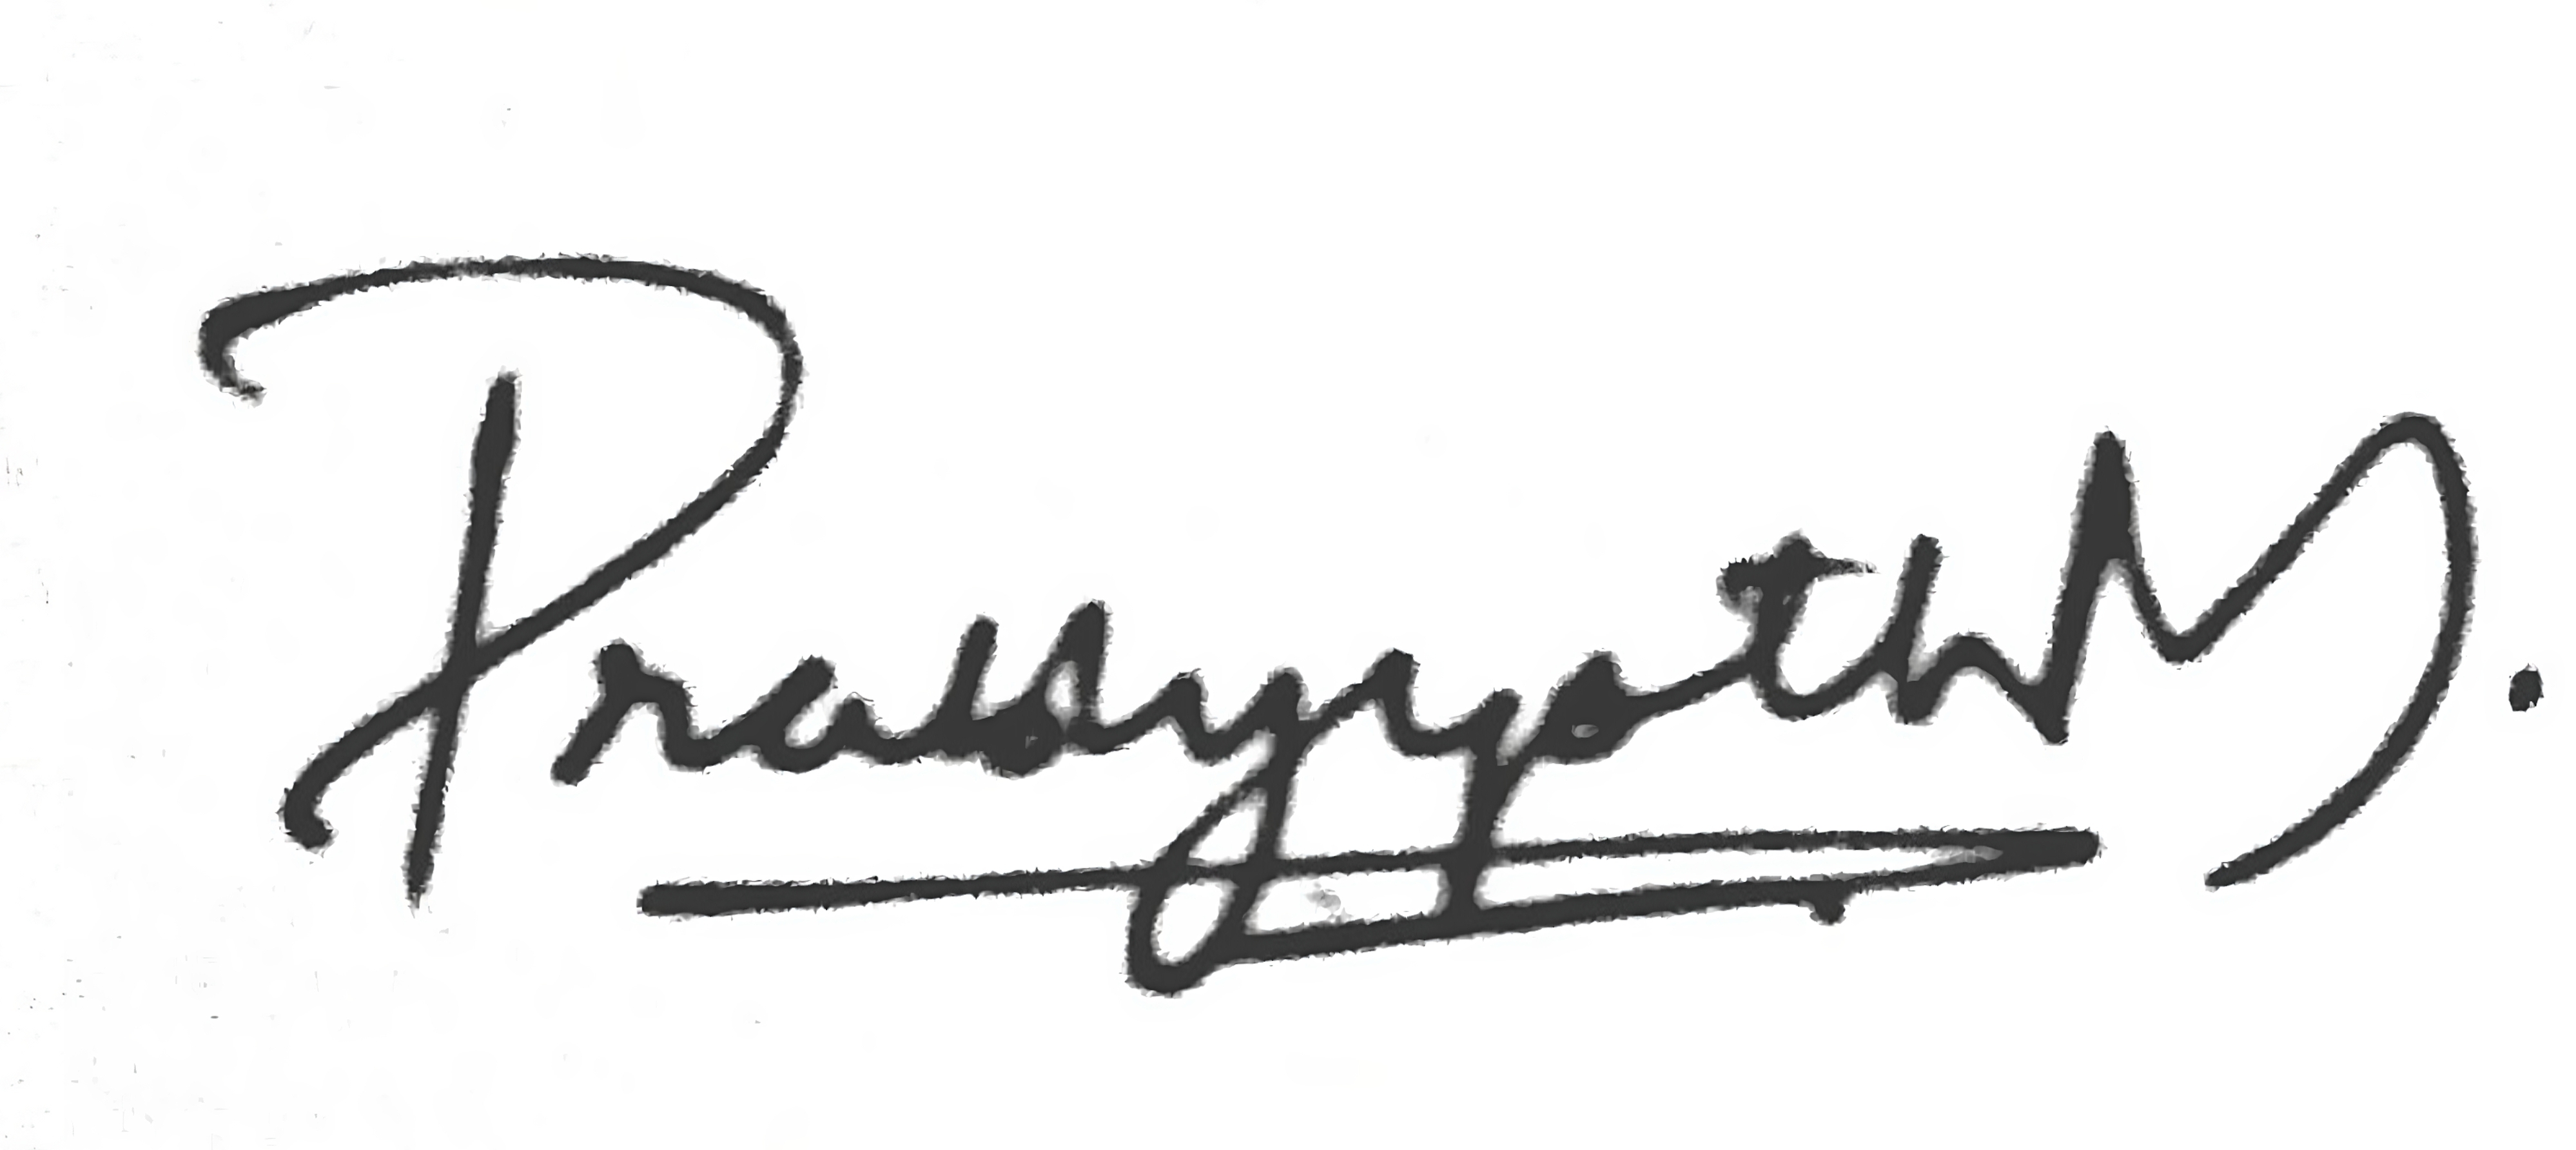 Praddyyoth M.